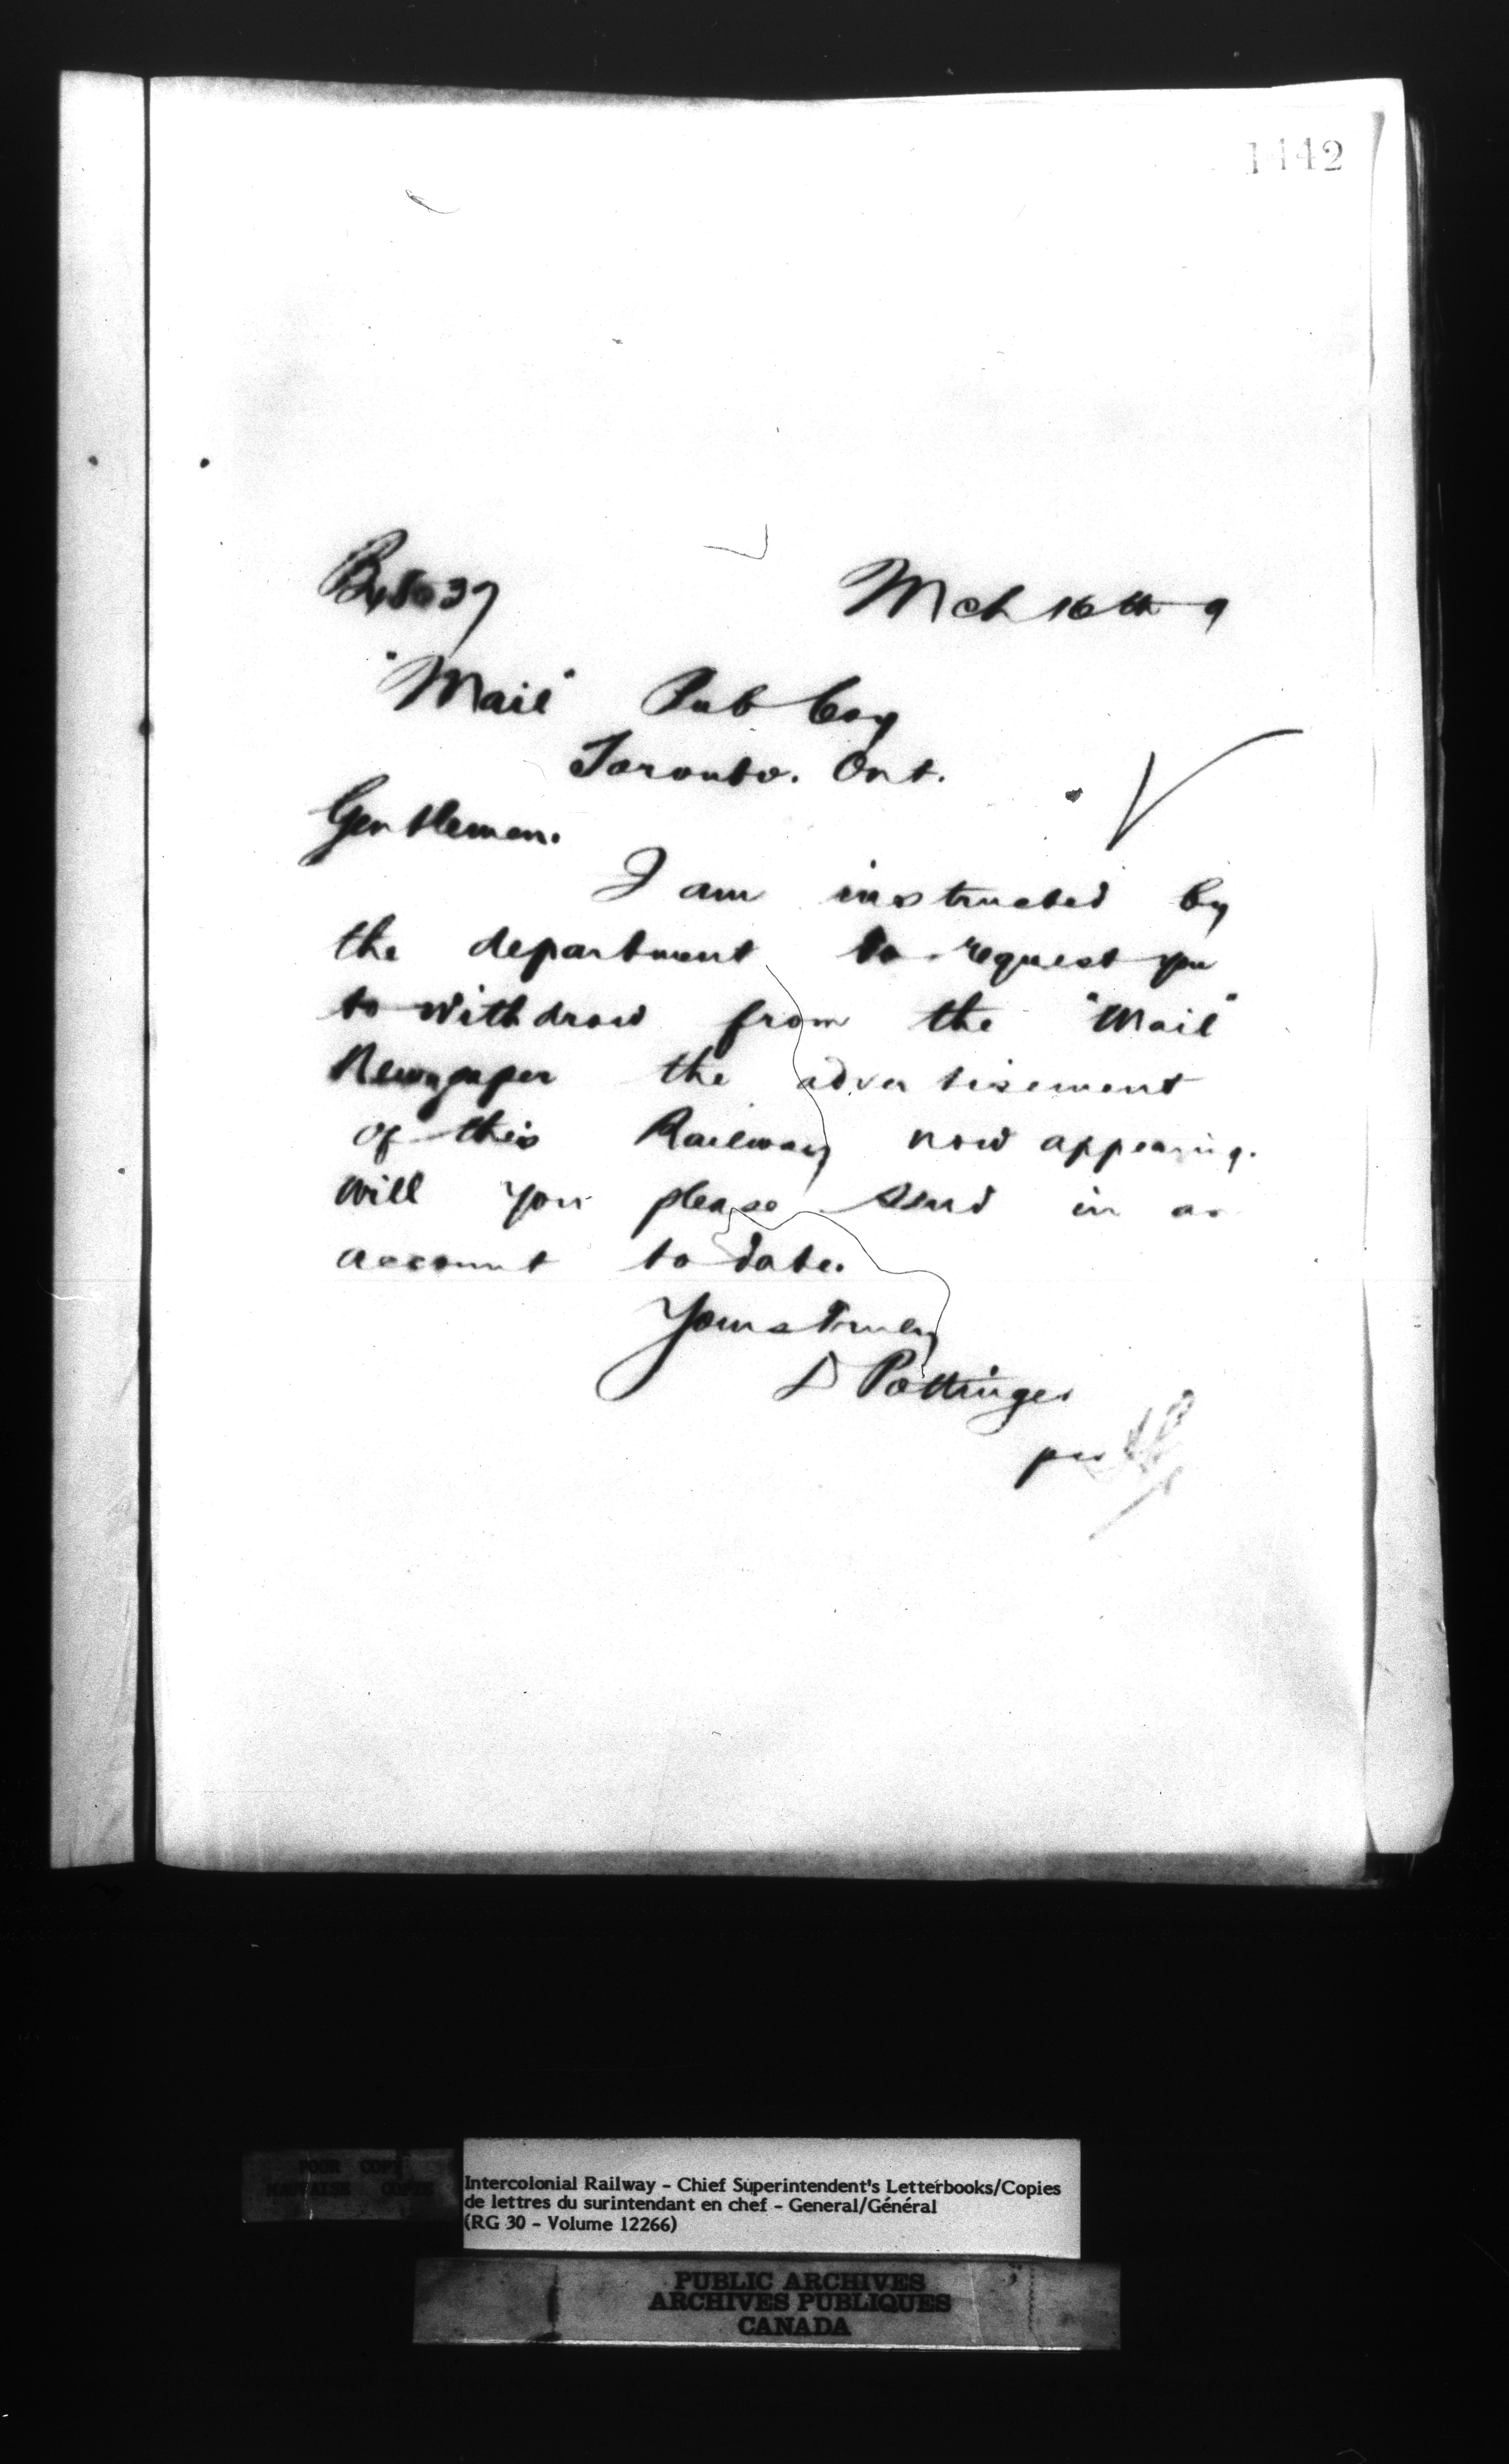 1442
Mch 16th 9
"Mail" Pub Coy
Toronto. Ont.
Gentlemen.
I am instructed by
the department to request you
to withdraw from the "Mail"
Newspaper the advertisement
of this Railway now appearing.
Will you please send in an
account to date.
Yours truly
D Pottinger
per
POOR COPY
MAUVAISE COPIE
Intercolonial Railway - Chief Superintendent's Letterbooks/Copies
de lettres du surintendant en chef - General/Général
(RG 30 - Volume 12266)
PUBLIC ARCHIVES
ARCHIVES PUBLIQUES
CANADA